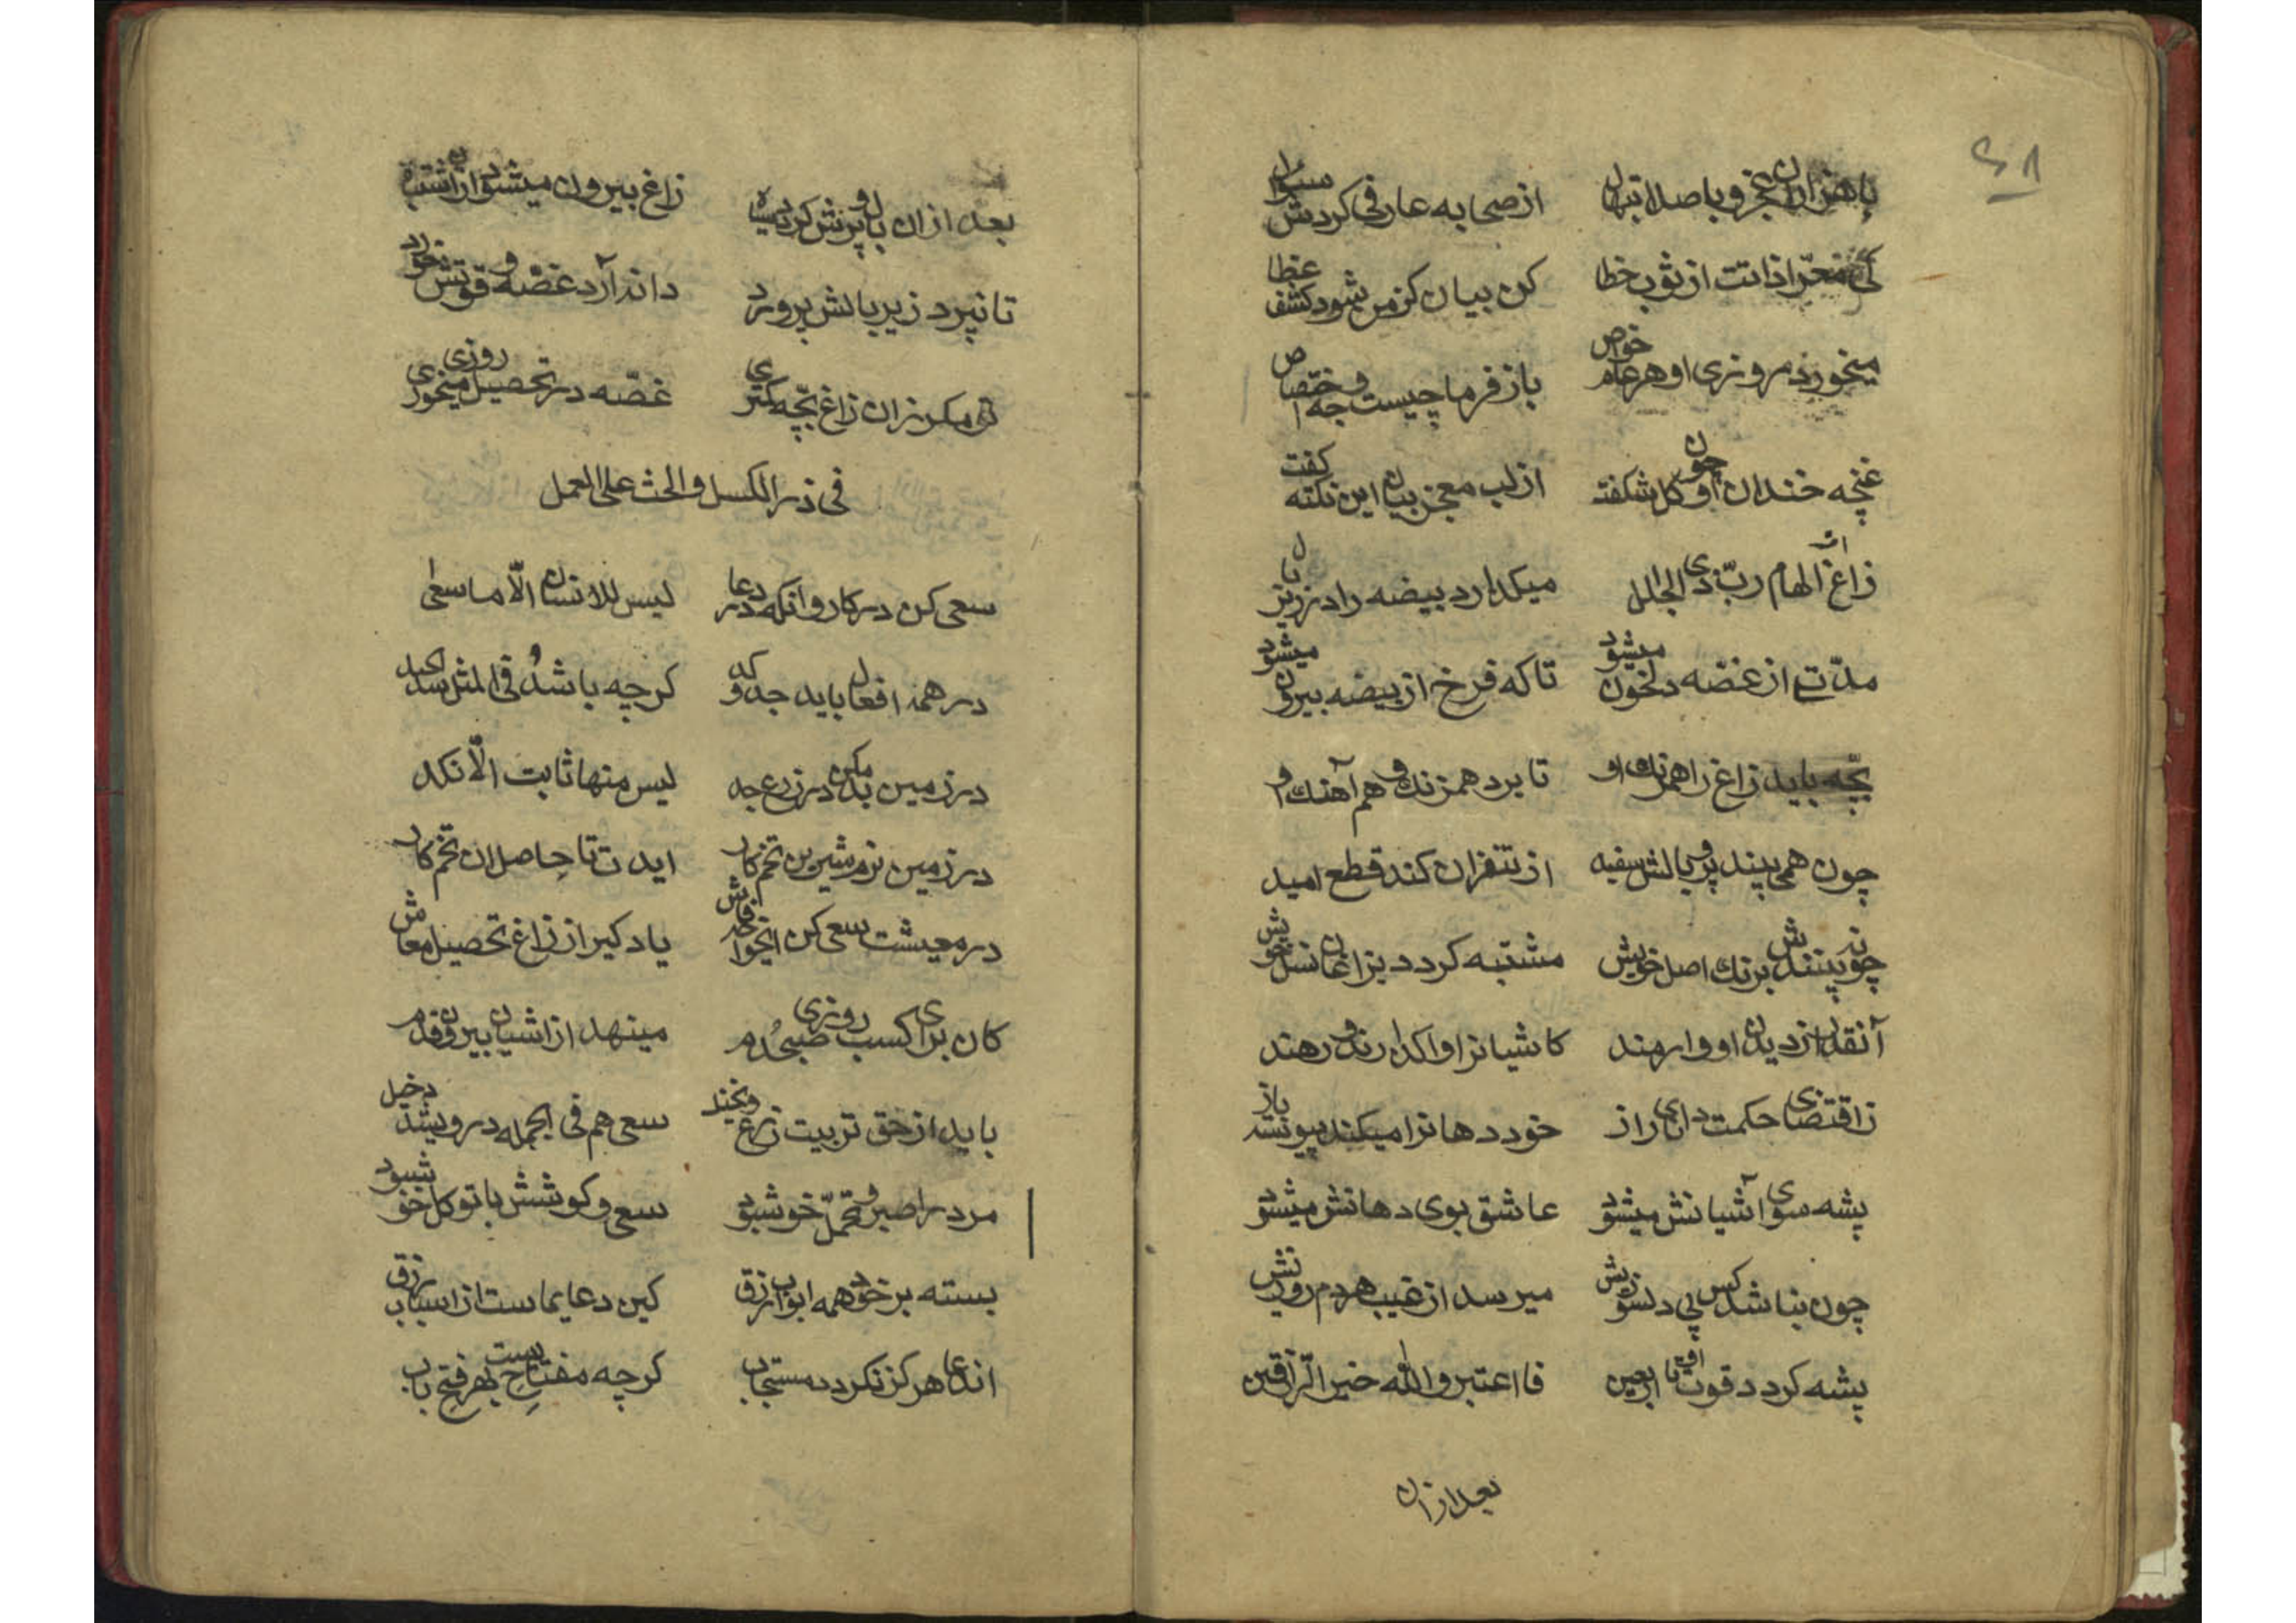 ۴۸
با هزاران عجز و با صد ابتهال از صحابه عارفی کردش سئوال
کی معرّا ذاتت از ثوب خطا کن بیان کز من شود کشف غطا
میخورند روزی او هر عام خواص باز فرما چیست وجه اختصاص
غنچه خندان او چون گل شکفت از لب معجز بیان این نکته گفت
زاغ از الهام ربّ ذی الجلال میگذارد بیضه را در زیر بال
مدّتے از غصّه دلخون میشود تا که فرخ از بیضه بیرون میشود
بچّه باید زاغ را همرنك او تا برد همرنك و هم آهنك او
چون همی بیند پر و بالش سفید از تنفر زان کند قطع امید
چونه بینندش برنك اصل خویش مشتبه گردد بزاغان نسل خویش
آنقدر از دیدن او وارمند کاشیانرا واگذارند و رهند
زاقتضای حکمت دانای راز خود دهانرا میکند پیوسته باز
پشه سوی آشیانش میشود عاشق بوی دهانش میشود
چون نباشد کس پی دلسوزیش میرسد از غیب هردم روزیش
پشه گردد قوت او تا اربعین فااعتبر والله خیر الرّازقین
بعد از ان
بعد از ان بال و پرش گردد سیاه زاغ بیرون میشود از اشتباه
تا نپرد زیر بالش پرورد دانه آرد غصّه و قوتش خورد
تو مکر زان زاغ بچّه کمتری غصّه در تحصیل روزی میخوری
فی ذم الکسل و الحث علی العمل
سعی کن در کار و انکه در دعا لیس للانسان الّا ما سعی
در همه افعال باید جد و کد گرچه باشد فی المثل سد
در زمین بد مکن در زرع جد لیس منها ثابت الّا نکد
در زمین نرم شیرین تخم کار ایدت تا حاصل ان تخم کار
در معیشت سعی کن ایخواجه فاش یاد گیر از زاغ تحصیل معاش
کان برای کسب روزی صبحدم مینهد از اشیان بیرون قدم
باید از حق تربیت زرع و نخیل سعی هم فی الجمله در وی بیند دخیل
مرد را صبر و تحمّل خوش بود سعی و کوشش با توکل خوش بود
بسته بر خود همه ابواب رزق کین دعا یماست از اسباب رزق
اندعا هرگز نگردد مستجاب گرچه مفتاحیست بهر فتح باب